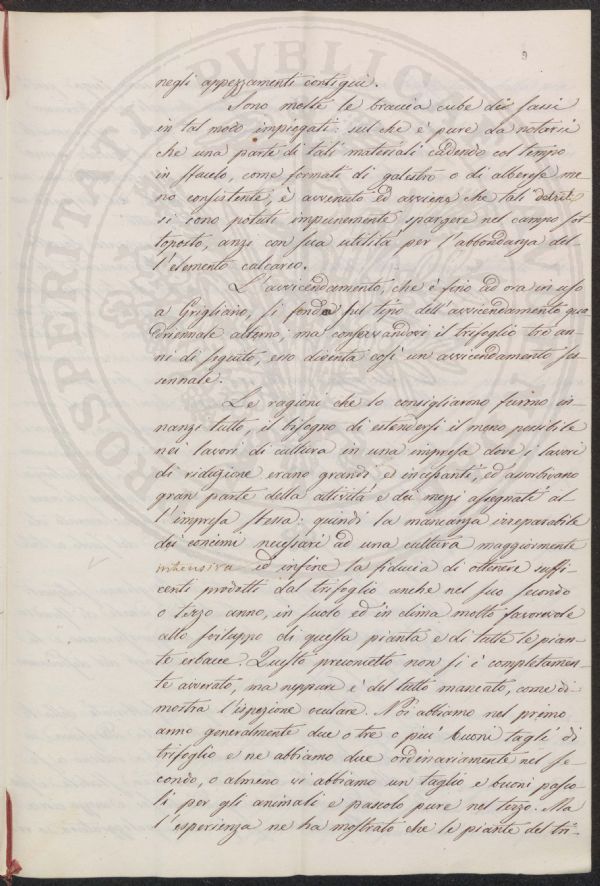 9
negli appezzamenti contigui.
Sono molte le braccia cube di sassi
in tal modo impiegati: sul che è pure da notarsi
che una parte di tali materiali cadendo col tempo
in sfacelo, come formati di galestro o di alberese me-
no consistente, è avvenuto ed avviene che tali detriti
si sono potuti impunemente spargere nel campo sot-
toposto, anzi con sua utilità per l'abbondanza del-
l'elemento calcareo.
L'avvicendamento, che è fino ad ora in uso
a Grigliano, si fonda sul tipo dell'avvicendamento qua-
driennale alterno; ma conservandosi il trifoglio tre an-
ni di seguito, esso diventa così un avvicendamento ses-
sennale.
Le ragioni che lo consigliarono furono in-
nanzi tutto, il bisogno di estendersi il meno possibile
nei lavori di cultura in una impresa dove i lavori
di riduzione erano grandi ed incessanti, ed assorbivano
gran parte della attività e dei mezzi assegnati al
l'impresa stessa: quindi la mancanza irreparabile
dei concimi necessari ad una cultura maggiormente
intensiva ed infine la fiducia di ottenere suffi-
centi prodotti dal trifoglio anche nel suo secondo
o terzo anno, in suolo ed in clima molto favorevole
allo sviluppo di questa pianta e di tutte le pian-
te erbacee. Questo preconcetto non si è completamen-
te avverato, ma neppure è del tutto mancato, come di-
mostra l'ispezione oculare. Noi abbiamo nel primo
anno generalmente due o tre o più buoni tagli di
trifoglio e ne abbiamo due ordinariamente nel se-
condo, o almeno vi abbiamo un taglio e buoni pasco-
li per gli animali e pascolo pure nel terzo. Ma
l'esperienza ne ha mostrato che le piante del tri-
PROSPERITATI PVBLICAE